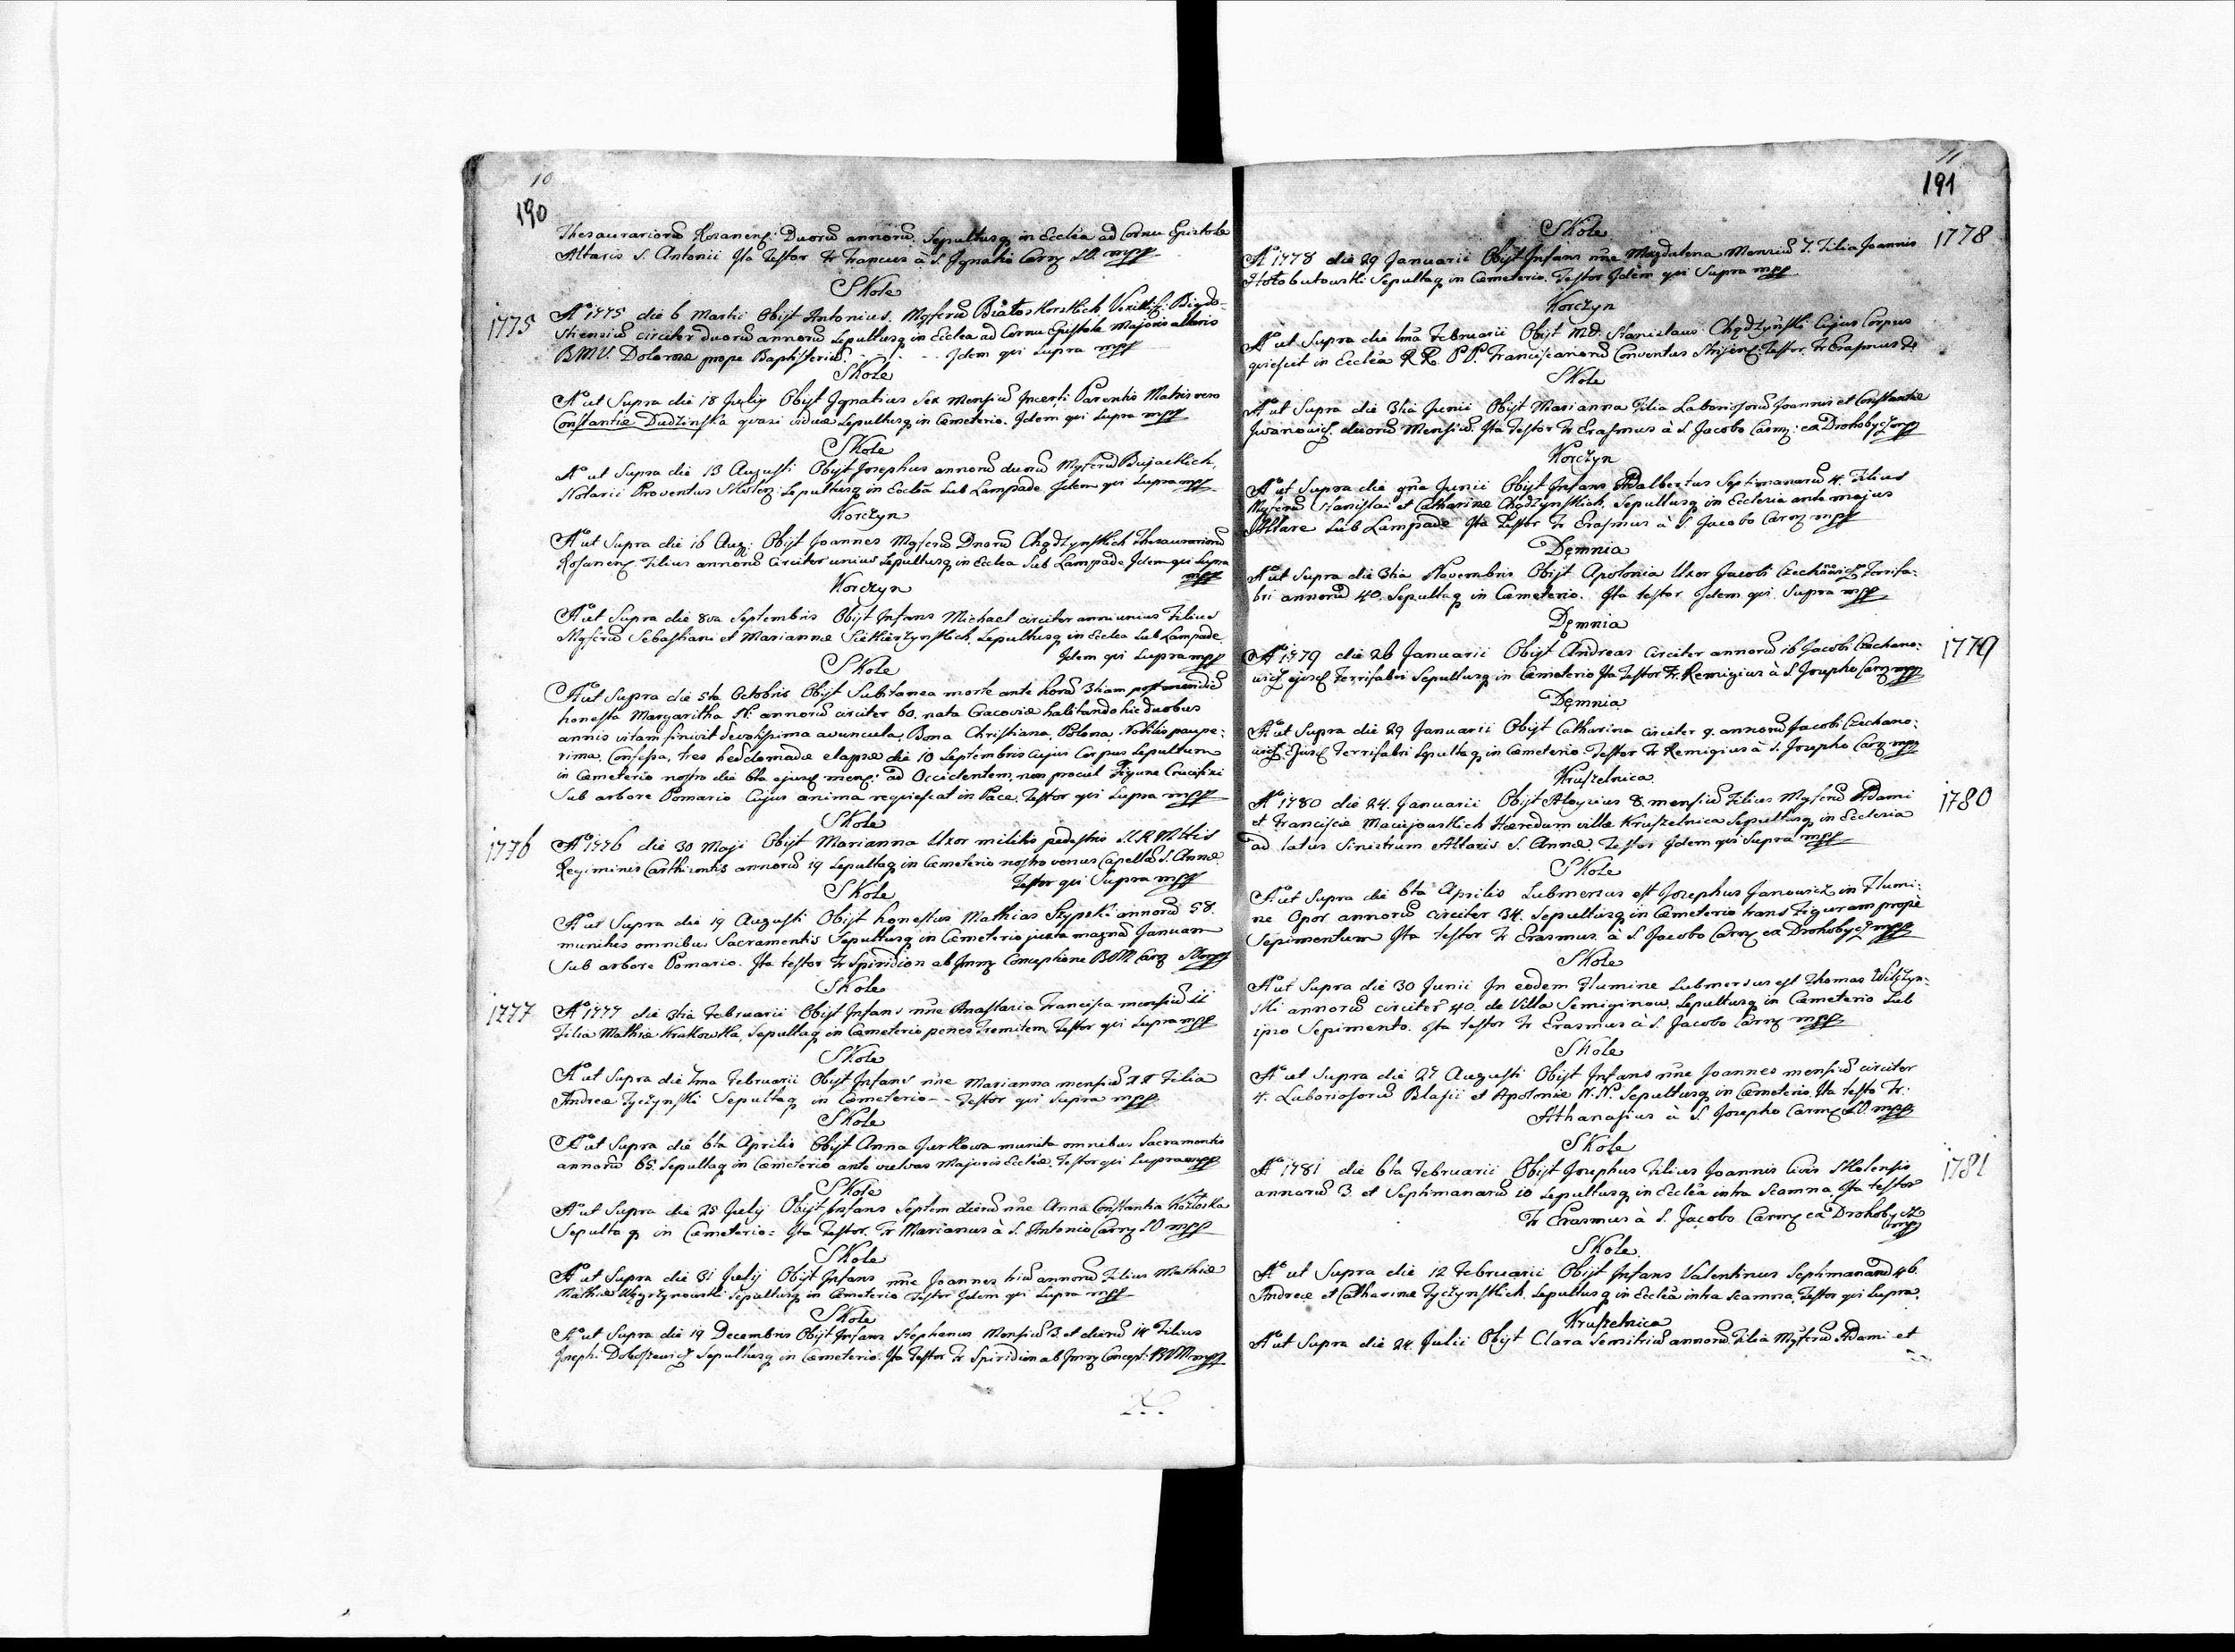 10
190
Thesaurariorũ Rozanens: Duorũ annorũ. Sepultusq in Ecclĩa ad Cornu Epistolæ
Altaris S. Antonii Ita Testor Fr Francus à S. Ignatio Carm: LD. mpp
Skole
1775
Aº 1775 die 6 Martii Obijt Antonius. Mgfcorũ Białoskorskich Vexillif: Bigdo-
stiensiũ circiter duorũ annorũ Sepultusq in Ecclea ad Cornu Epistolæ Majoris altaris
BMV. Dolorosæ prope Baptisteriũ. Idem qui supra mpp
Skole
Aº ut Supra die 18 July Obijt Ignatius Sex mensiũ Incerti Parentis Matris vero
Constantiæ Dudzinska quasi viduæ Sepultusq in Cæmeterio. Idem qui supra mpp
Skole
Aº ut Supra die 13 Augusti Obijt Josephus annorũ duorũ Mgfcorũ Bujackich,
Notarii Proventus Skolen: Sepultusq in Ecclẽa Sub Lampade. Idem qui supra mpp
Korczyn
Aº ut Supra die 16 Aug: Obijt Joannes Mgfcorũ Dnorũ Chądzynskich Thesaurariorũ
Rosanens: Filius annorũ Circiter unius Sepultusq in Ecclea Sub Lampade Idem qui supra
mpp
Korczyn
Aº ut Supra die 8va Septembris Obijt Infans Michael circiter anni unius Filius
Mgfcorũ Sebastiani et Mariannæ Siekierzynskich. Sepultusq in Ecclea Sub Lampade
Idem qui supra mpp
Skole
Aº ut Supra die 5ta Octobris Obijt Subitanea morte ante horã 3tiam post meridiẽ
honesta Margaritha N: annorũ circiter 60. nata Cracoviæ habitando hic duobus
annis vitam finivit devotissima avuncula, Bona Christiana, Polona, Nobilis paupe:
rima. Confessa, tres hebdomadæ elapsæ die 10 Septembris cujus Corpus Sepultum
in Cæmeterio nostro die 6ta ejusq mens: ad Occidentem, non procul Figuræ Crucifixi
Sub arbore Pomario Cujus anima requiescat in Pace. Testor qui supra mpp
Skole
1776
Aº 1776 die 30 Maji Obijt Marianna Uxor militis pedestris
Regiminis annorũ 19 Sepultaq in Cæmeterio nostro versus Capellã S. Annæ.
Testor qui Supra mpp
Skole
Aº ut Supra die 19 Augusti Obijt honestus Mathias Szypski annorũ 58.
munitus omnibus Sacramentis Sepultusq in Cæmeterio juxta magnã Januam
Sub arbore Pomario. Ita testor Fr Spiridion ab Imm: Conceptione BVM Carm:
Skole
1777
Aº 1777 die 3tia Februarii Obijt Infans nñe Anastasia Francisca mensiũ 11
Filia Mathiæ Krakowka, Sepultaq in Cæmeterio penes Fremitem Testor qui supra mpp
Skole
Aº ut Supra die 7ma Februarii Obijt Infans nñe Marianna mensiũ 11 Filia
Andreæ Tyczynski Sepultaq in Cæmeterio - - Testor qui supra mpp
Skole
Aº ut Supra die 6ta Aprilis Obijt Anna Jurkowa munita omnibus Sacramentis
annorũ 65. Sepultaq in Cæmeterio ante vulvas Majoris Ecclẽæ. Testor qui supra mpp
Skole
Aº ut Supra die 25 July Obijt Infans Septem dierũ nñe Anna Constantia Kozłoska
Sepultaq in Cæmeterio: Ita Testor. Fr Marianus à S. Antonio Carm: LD mpp
Skole
Aº ut Supra die 31 July Obijt Infans nñe Joannes triũ annorũ Filius Mathiæ
Mathiæ Węgrzynowski Sepultusq in Cæmeterio Testor Idem qui supra mpp
Skole
Aº ut Supra die 19 Decembris Obijt Infans Stephanus Mensiũ 3. et dierũ 14 Filius
Josephi Doboszewicz Sepultusq in Cæmeterio. Ita Testor Fr Spiridion ab Imm: Concept: BVM mpp
11
191
Skole
1778
Aº 1778 die 29 Januarii Obijt Infans nñe Magdalena Mensiũ 7. Filia Joannis
Hołobutowski Sepultaq in Cæmeterio. Testor Idem qui Supra mpp
Korczyn
Aº ut Supra die 1ma Februarii Obijt MD. Stanislaus Chądzyński Cujus Corpus
quiescit in Ecclẽa R R. P P. Franciscanorũ Conventus Strijens: Testor. Fr Erasmus &
Skole
Aº ut Supra die 3tia Junii Obijt Marianna Filia Laboriosorũ Joannis et Constantiæ
Jwanowicz. duorũ Mensiũ. Ita Testor Fr Erasmus à S. Jacobo Carm: ex Drohobycz mpp
Korczyn
Aº ut Supra die 9na Junii Obijt Infans Adalbertus Septimanarũ 4. Filius
Mgfcorũ Stanislai et Catharinæ Chądzynskich. Sepultusq in Ecclesia ante majus
Altare Sub Lampade Ita Testor Fr Erasmus à S. Jacobo Carm: mpp
Dęmnia
Aº ut Supra die 3tia Novembris Obijt Apolonia Uxor Jacobi Czechãowicz Ferrifa:
bri annorũ 40. Sepultaq in Cæmeterio. Ita testor Idem qui Supra mpp
Dęmnia
1779
Aº 1779 die 26 Januarii Obijt Andreas circiter annorũ 16 Jacobi Czechano:
wicz ejusq Ferrifabri Sepultusq in Cæmeterio Ita Testor Fr. Remigius à S. Josepho Carm: mpp
Dęmnia
Aº ut Supra die 29 Januarii Obijt Catharina circiter 9. annorũ Jacobi Czechano:
wicz Ejusq Ferrifabri Sepultaq in Cæmeterio. Testor Fr Remigius à S. Josepho Carm: mpp
Kruszelnica
1780
Aº 1780 die 24. Januarii Obijt Aloysius 8. mensiũ Filius Mgfcorũ Adami
et Franciscæ Maciejowskich Hæredum villæ Kruszelnica Sepultusq in Ecclesia
ad latus Sinistrum Altaris S. Annæ. Testor Idem qui Supra mpp
Skole
Aº ut Supra die 6ta Aprilis Submersus est Josephus Janowicz in Flumi:
ne Opor annorũ circiter 34. Sepultusq in Cæmeterio trans Figuram propè
Sepimentum Ita testor Fr Erasmus à S. Jacobo Carm: ex Drohobycz mpp
Skole
Aº ut Supra die 30 Junii In eodem Flumine Submersus est Thomas Wilczyn:
ski annorũ circiter 40. de Villa Semiginow. Sepultusq in Cæmeterio Sub
ipso Sepimento. Ita testor Fr Erasmus à S. Jacobo Carm: mpp
Skole
Aº ut Supra die 27 Augusti Obijt Infans nñe Joannes mensiũ circiter
4. Laboriosorũ Blasii et Apoloniæ N. N. Sepultusq in Cæmeterio. Ita testo Fr.
Athanasius à S. Josepho Carm: LD. mpp
Skole
1781
Aº 1781 die 6ta Februarii Obijt Josephus Filius Joannis Civis Skolensis
annorũ 3. et Septimanarũ 10 Sepultusq in Ecclẽa intra Scamna. Ita testor
Fr Erasmus à S. Jacobo Carm: ex Drohobycz
mpp
Skole
Aº ut Supra die 12 Februarii Obijt Infans Valentinus Septimanarũ 46.
Andreæ et Catharinæ Tyczynskich. Sepultusq in Ecclẽa intra Scamna. Testor qui supra.
Kruszelnica
Aº ut Supra die 24. Julii Obijt Clara Semitriũ annorũ. Filia Mgfcorũ Adami et